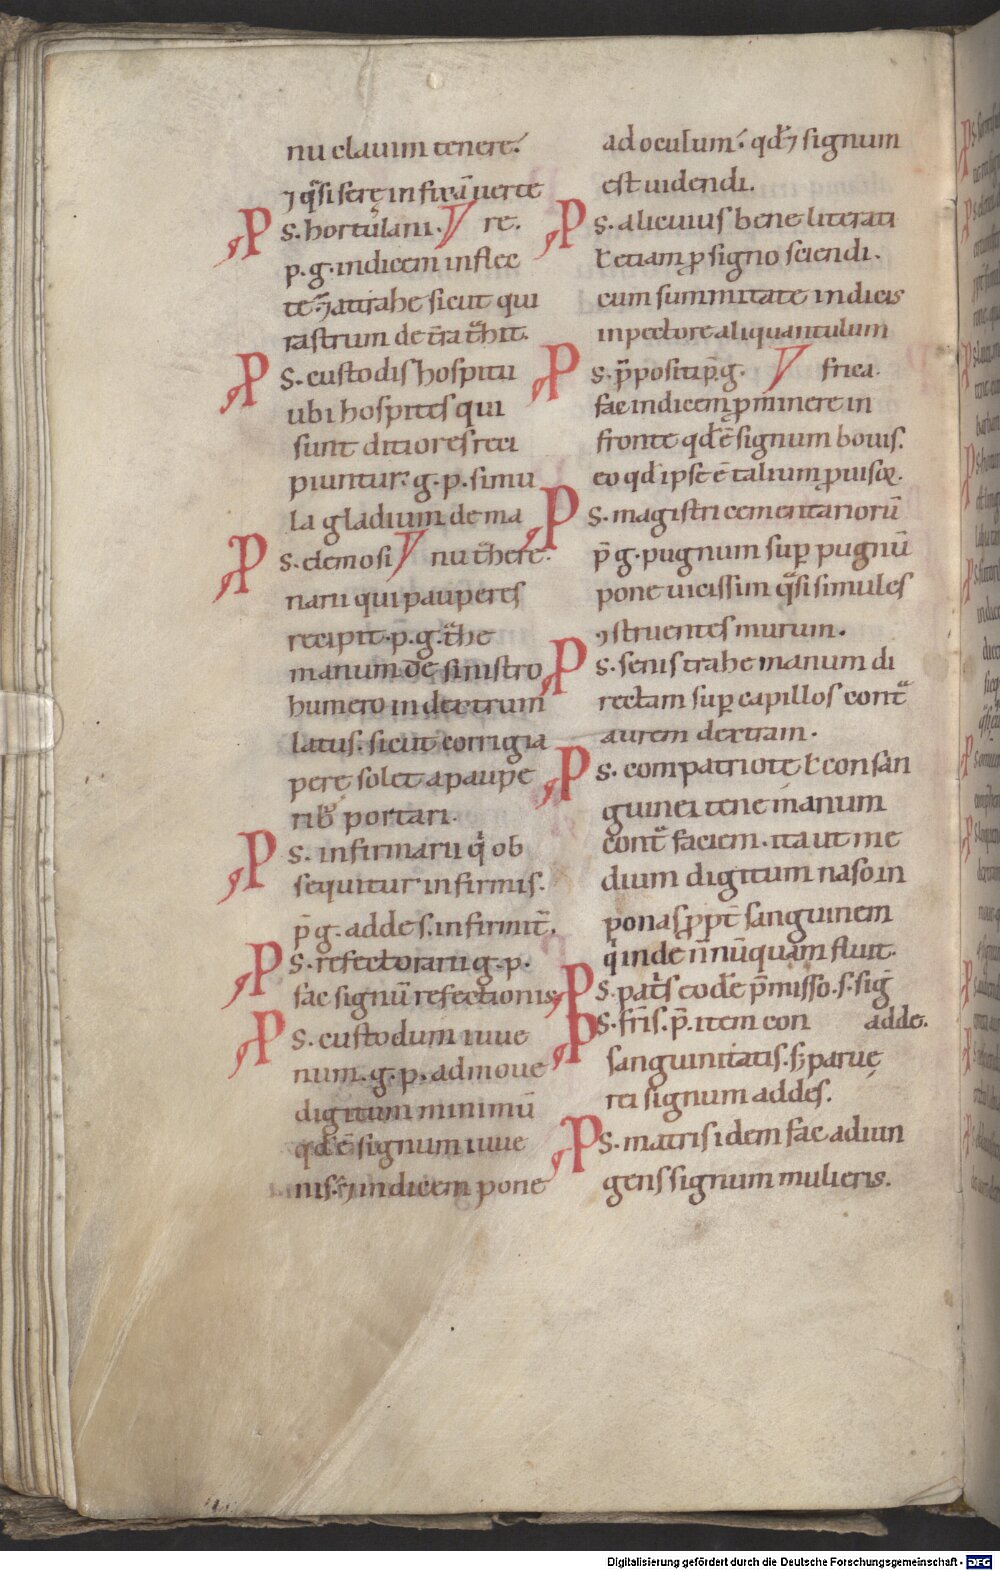 nu clauim tenere.
⁊ q̄si serę infixā uerte
P s. hortulani. re.
p. g. indicem inflec
te. ⁊ attrahe sicut qui
rastrum de t̄ra t̄hit.
P s. custodis hospitii
ubi hospites qui
sunt ditiores reci
piuntur. g. p. simu
la gladium de ma
P s. elemosi nu t̄here.
narii qui pauperes
recipit. p̄. g. t̄he
manum de sinistro
humero in dextrum
latus. sicut corrigia
perę solet a paupe
rib; portari.
P s. infirmarii q̍ ob
sequitur infirmis.
p̄ g. adde s. infirmit̄.
P s. refectorarii g. p.
fac signū refectionis.
P s. custodum iuue
num. g. p. admoue
digitum minimū
qd̄ ē signum iuue
nis. ⁊ indicem pone
ad oculum. qd̄ ⁊ signum
est uidendi.
P s. alicuius bene literati
ł etiam ꝓ signo sciendi.
cum summitate indicis
in pectore aliquantulum
P s. p̄positi p̄. g. frica.
fac indicem ꝓminere in
fronte qd̄ ē signum bouis.
eo qd̄ ipse ē talium ꝓuisor.
P s. magistri cementariorū
p̄ g. pugnum suꝑ pugnū
pone uicissim q̄si simules
ꝯstruentes murum.
P s. senis trahe manum di
rectam suꝑ capillos cont̄
aurem dextram.
P s. compatriotę ł consan
guinei tene manum
cont̄ faciem. ita ut me
dium digitum naso in
ponas ꝓpt̄ sanguinem
q̍ inde n̄nūquam fluit.
P s. pat̄s eodē p̄misso. s. siḡ
P s. fr̄is. p̄. item con adde.
sanguinitatis. s; paruę
rei signum addes.
P s. matris idem fac adiun
gens signum mulieris.
Digitalisierung gefördert durch die Deutsche Forschungsgemeinschaft - DFG